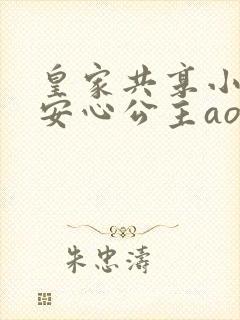 皇家共享小
安心公主ao
朱忠濤